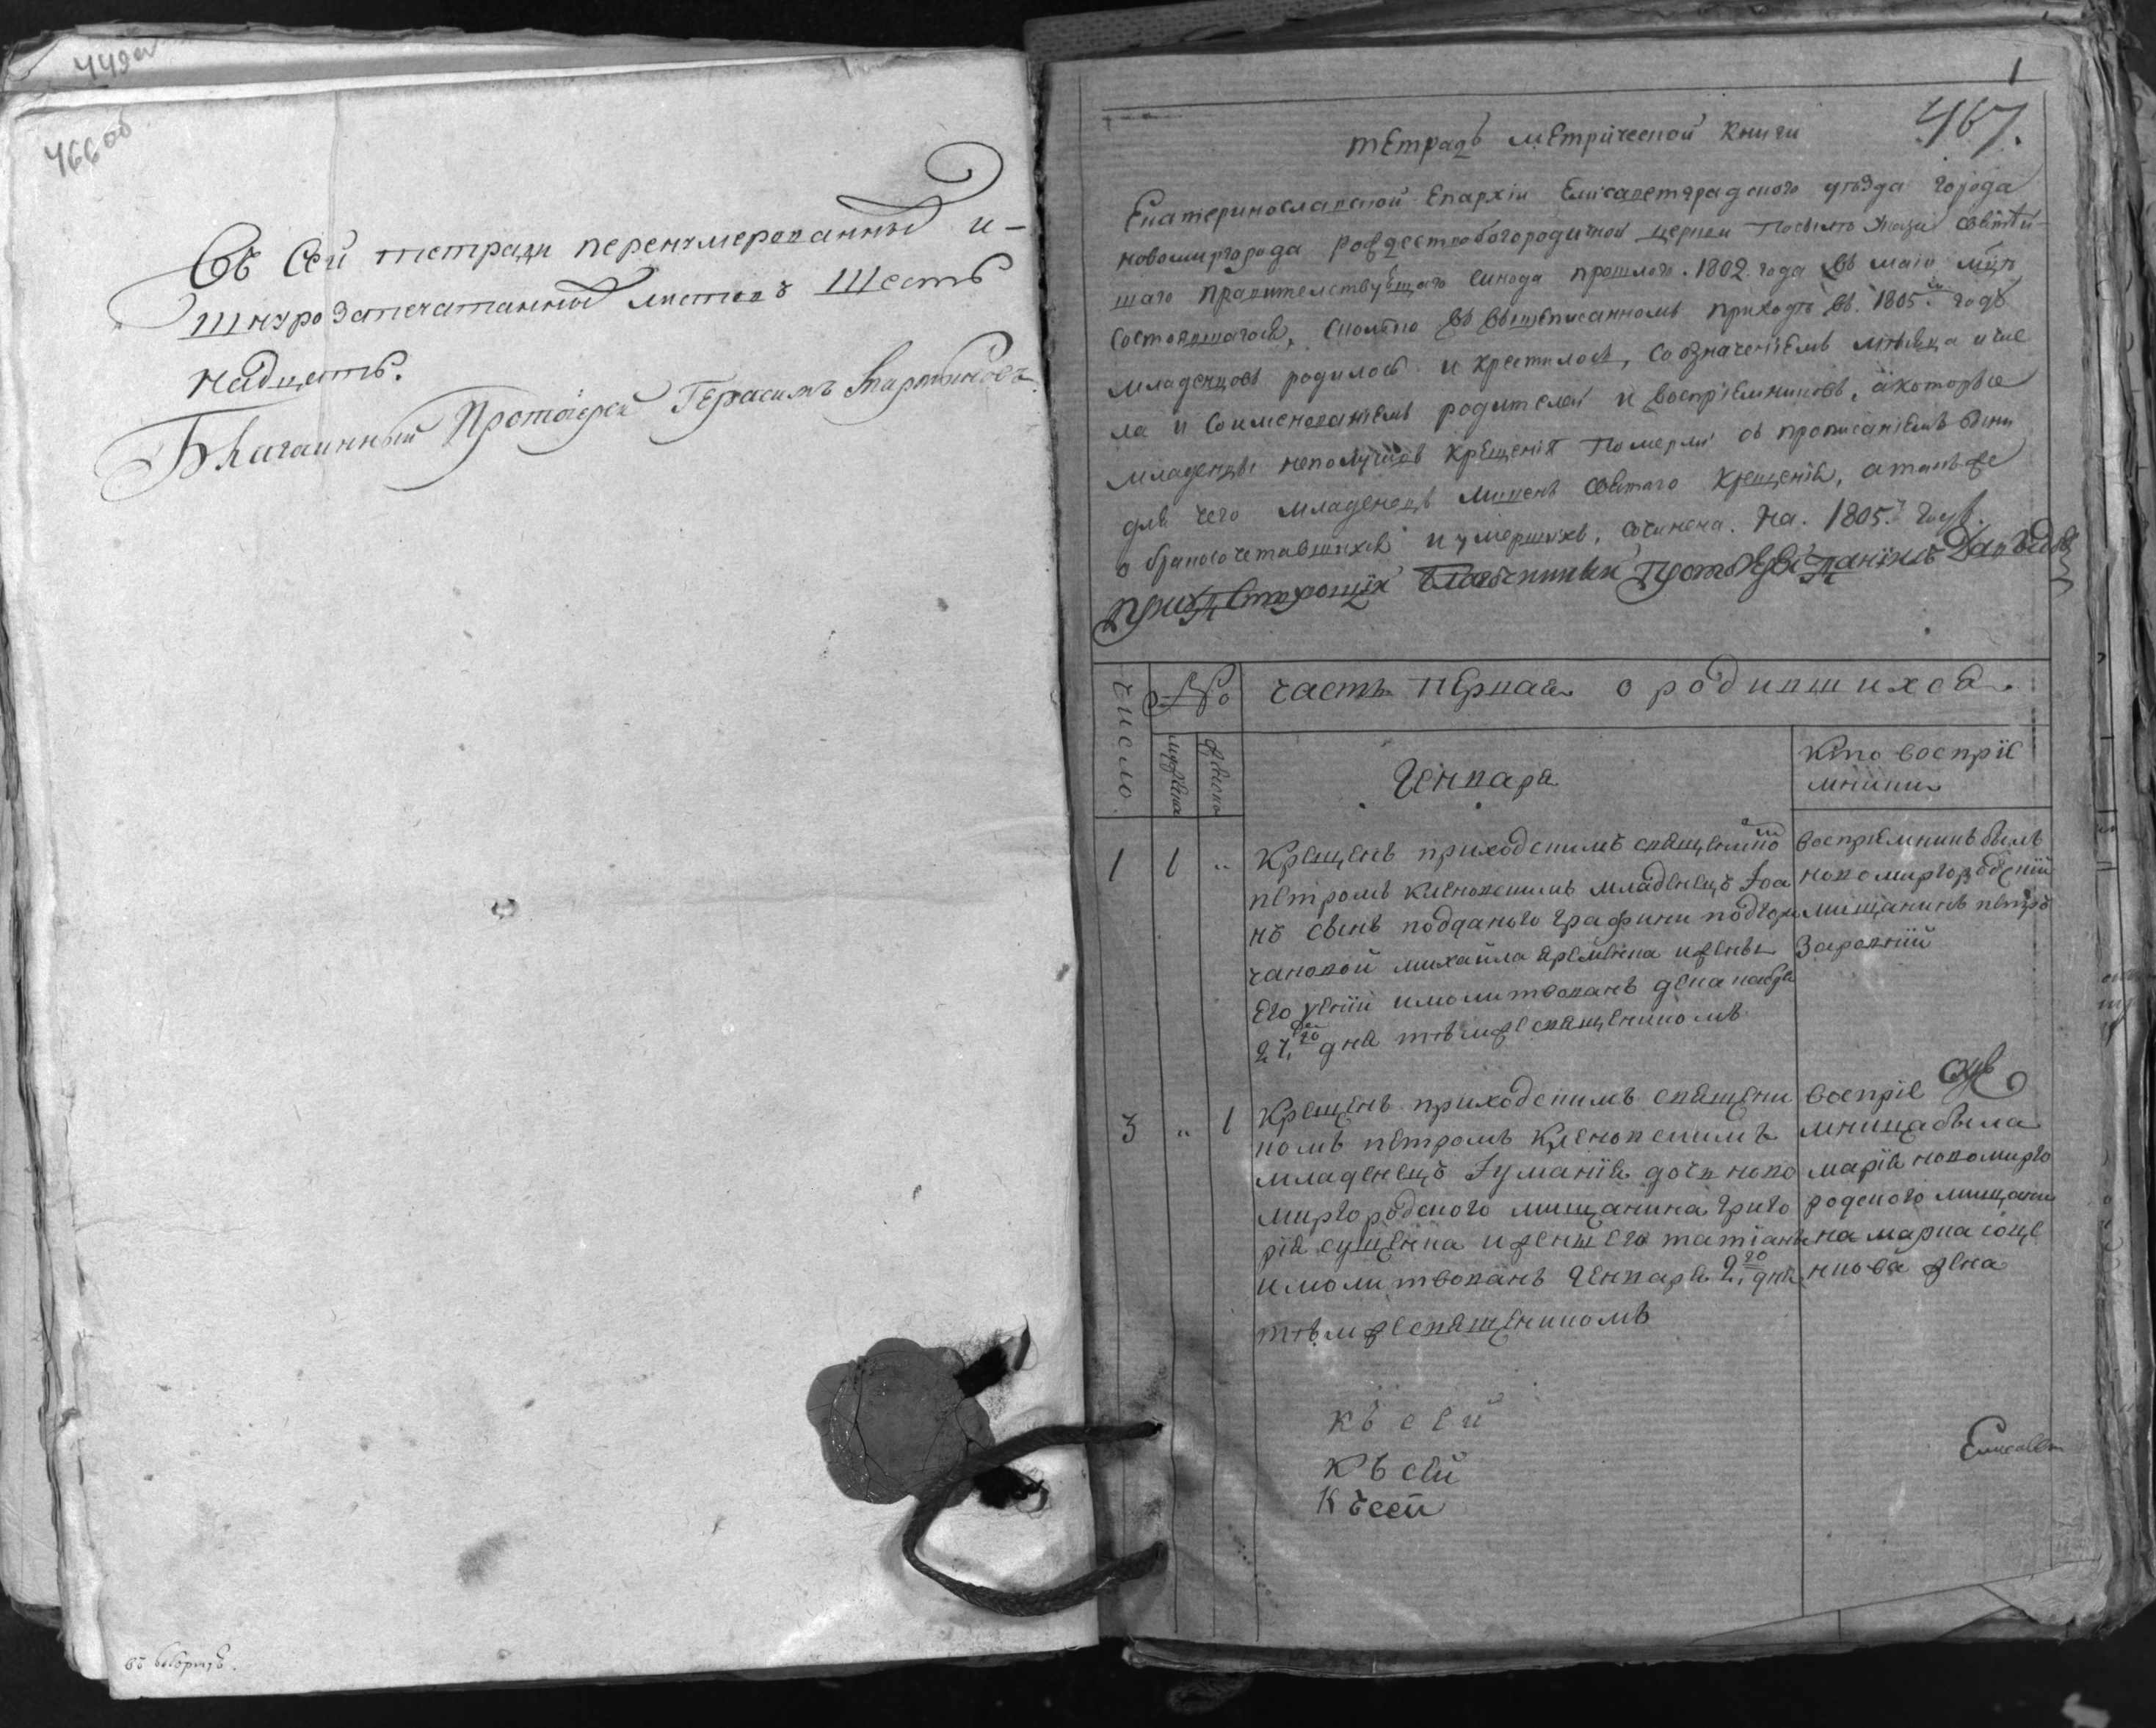 449об
466об
Въ Сей тетради перенумерованныхъ и-
шнурозапечатанныхъ листовъ Шесть
надцать.
Благочинный Протоіерей Герасимъ
въ
1
467.
тетрадь метрической книги
Екатеринославской Епархіи Елисаветградского уѣзда города
новомиргорода рождествобогородичной церкви по силѣ указа святѣй-
шаго правителствующаго синода прошлого. 1802. года въ маіи мцѣ
состоявшагося, сколко въ вышеписанномъ приходѣ въ. 1805. годѣ
младенцовъ родилось и крестилось, со означеніемъ мѣсяца и чис
ла и соименованіемъ родителей и воспріемниковъ, а которые
младенцы неполучивъ крещенія померли съ прописаніемъ вины
для чего младенецъ лишенъ святаго крещенія, а такъже
о бракосочетавшихся и умершихъ, сочинена. на. 1805. годъ.
присудствующій благочинный протоіерей
число
№
мужеска
женска
часть первая о родившихся.
Генваря
кто воспріе
мники
1 1 "
Крещенъ приходскимъ священико
петромъ кленовскимъ младенецъ Іоа
нъ сынъ подданого графини подгори
чановой михаила яременка и жены
его и молитвованъ дека
27. дня тѣмже священикомъ
воспріемникъ былъ
новомиргородскій
мищанинъ петръ
Заровній
3 " 1
Крещенъ приходскимъ священи
комъ петромъ кленовскимъ
младенецъ Іуманія дочь ново
миргородского мищанина григо
рія сущенка и жены его татіаны
и молитвованъ генваря 2. дня
тѣмже священикомъ
воспріе
мница была
марія новомирго
родского мищани
на марка
жена
къ сей
къ сей
къ сей
Елисавет